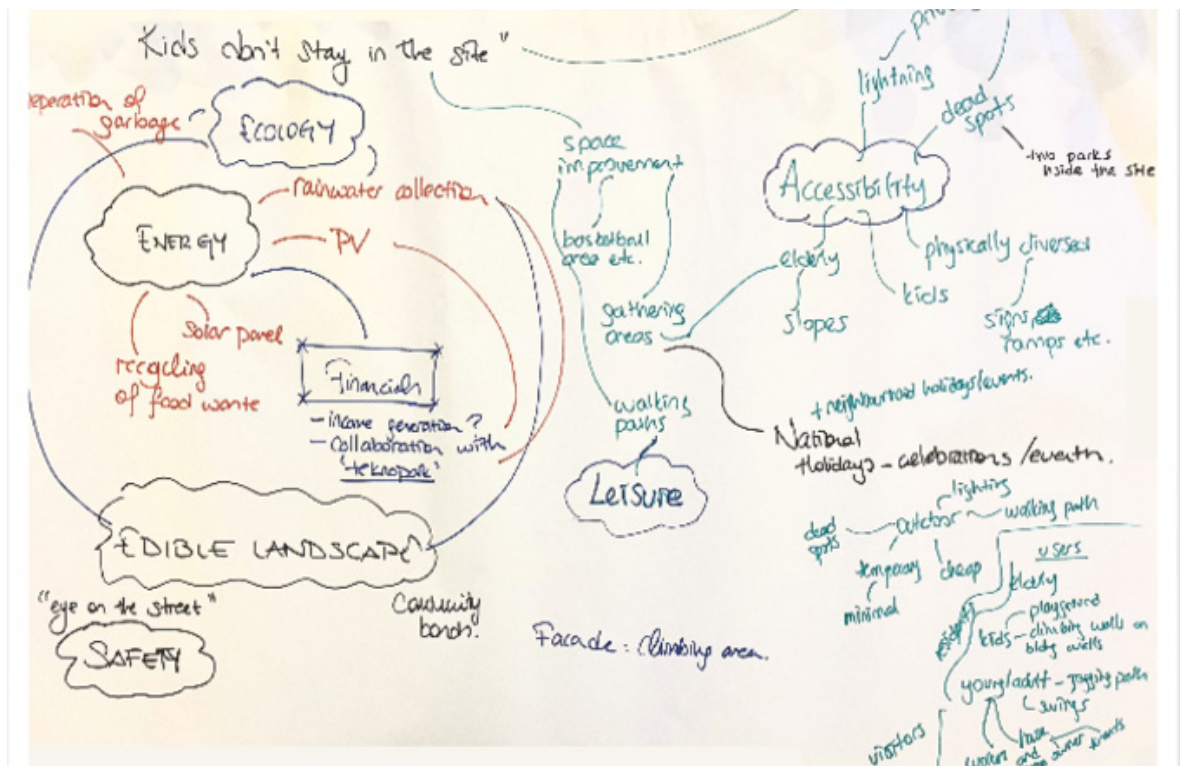 Kids don't stay in the site"
seperation of
garbage
ECOLOGY
rainwater collection
ENERGY
PV
Solar panel
recycling
of food waste
Financials
- income generation?
- collaboration with
'teknopark'
EDIBLE LANDSCAPE
"eye on the street"
SAFETY
Community
bonds.
space
improvement
basketball
area etc.
gathering
areas
walking
paths
LEISURE
Facade: climbing area.
lightning
dead
spots
two parks
inside the site
Accessibility
elderly
slopes
kids
physically diversed
signs,
ramps etc.
+ neighbourhood holidays/events.
National
Holidays - celebrations/events.
lighting
Outdoor
walking path
dead
spots
temporary
minimal
cheap
users
elderly
residents
kids
playground
climbing walls on
bldg walls
young/adult - jogging path
swings
visitors
and
events